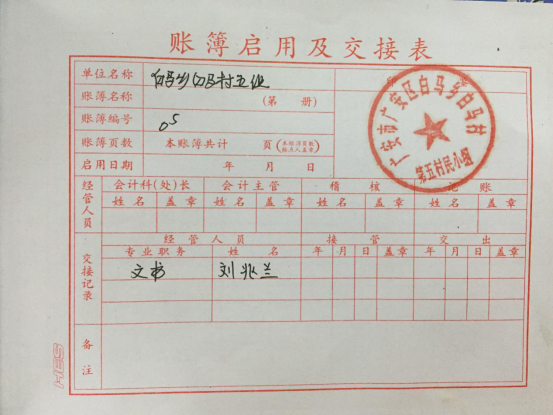 账簿启用及交接表
单位名称 白马乡白马村五组
账簿名称 (第 册)
账簿编号 05
账簿页数 本账簿共计 页 (本账簿页数 检点人盖章)
启用日期 年 月 日
广安市广安区白马乡白马村
第五村民小组
经管人员 会计科(处)长 会计主管 稽核 账
姓名 盖章 姓名 盖章 姓名 盖章 姓名 盖章
交接记录 经管人员 接管 交出
专业职务 姓名 年 月 日 盖章 年 月 日 盖章
文书 刘兆兰
备注